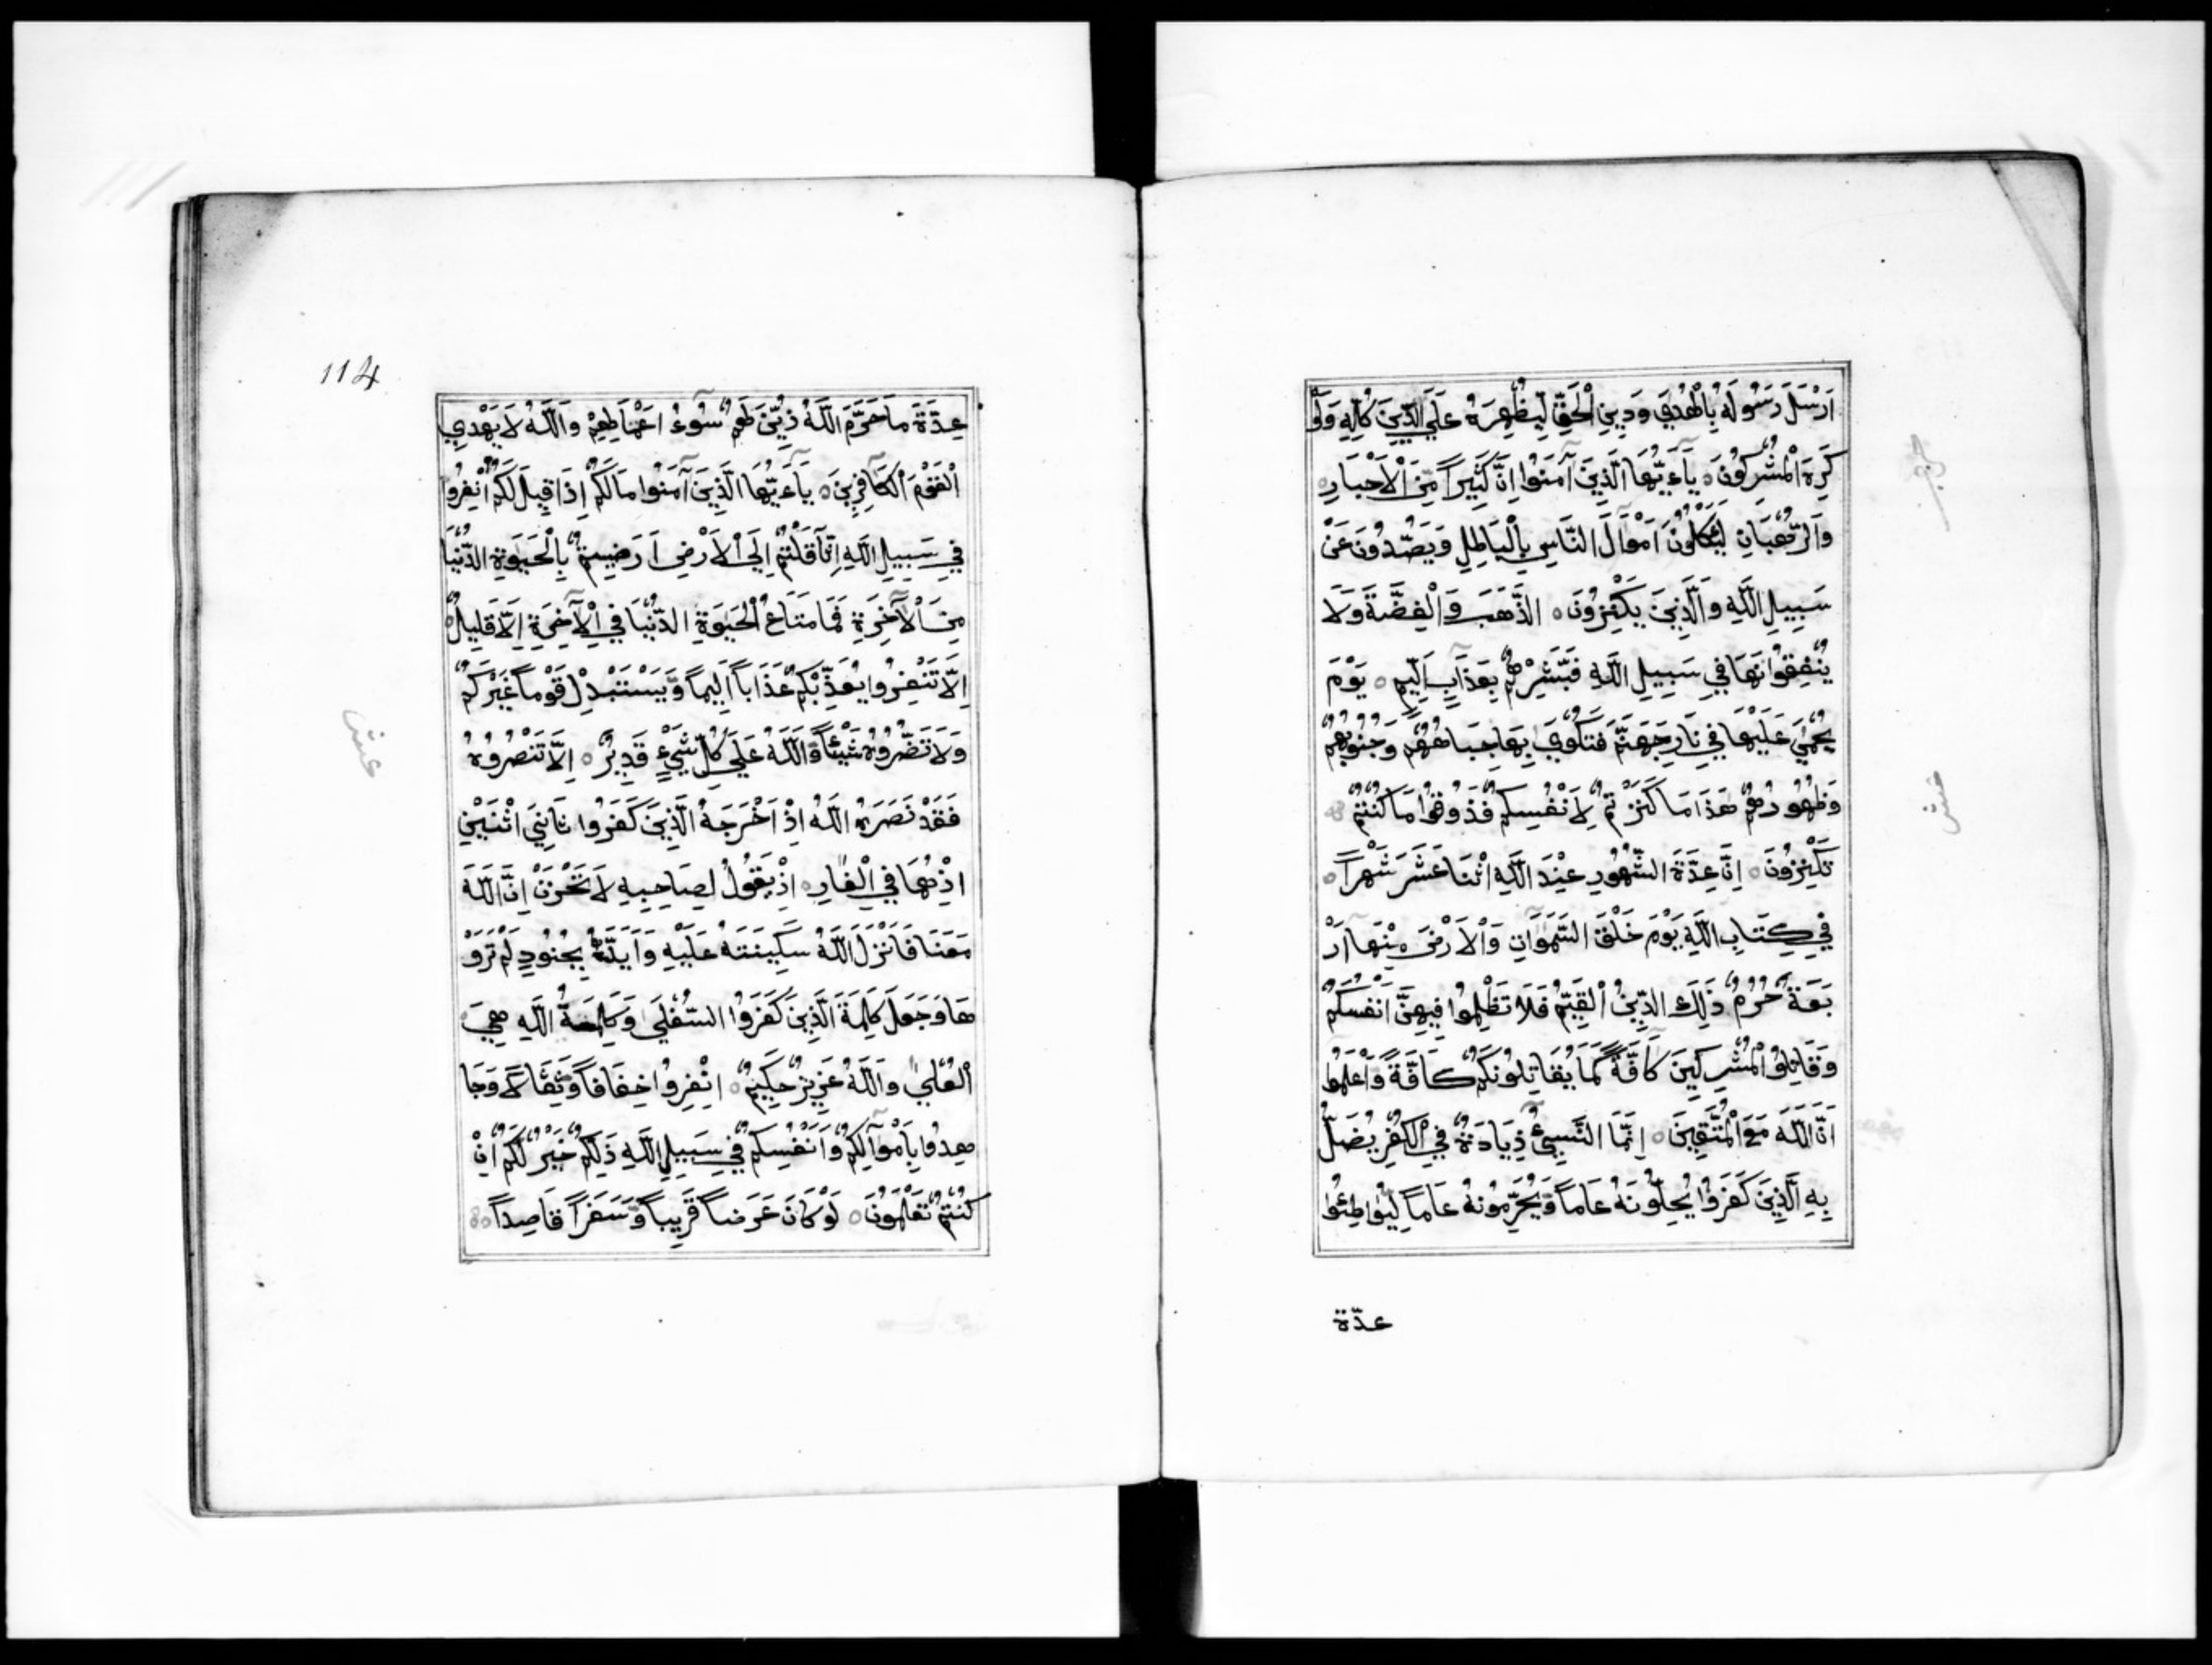 اَرْسَلَ رَسُولَهُ بِالْهُدَي وَدِينِ الْحَقِّ لِيُظْهِرَهُ عَلَي الدِّينَ كُلِّهِ وَلَوْ
كَرِهَ الْمُشْرِكُونَ ه يَآءَيُّهَا الَّذِينَ آمَنُوا اِنَّ كَثِيراً مِّنَ الْاَحْبَارِ ه
وَالرُّهْبَانِ لَئَكُلُونَ اَمْوَالَ النَّاسِ بِالْبَاطِلِ وَيَصُدُّونَ عَنْ
سَبِيلِ اللَّهِ وَالَّذِينَ يَكْنِزُونَ ه الذَّهَبَ وَالْفِضَّةَ وَلَا
يُنْفِقُوانَهَا فِي سَبِيلِ اللَّهِ فَبَشِّرْهُمْ بِعَذَابٍ اَلِيمٍ ه يَوْمَ
يُحْمَيٰ عَلَيْهَا فِي نَارِ جَهَنَّمَ فَتُكْوَيٰ بِهَا جِبَاهُهُمْ وَجُنُوبُهُمْ
وَظُهُورُهُمْ هَذَا مَا كَنَزْتُمْ لِاَنْفُسِكُمْ فَذُوقُوا مَا كُنْتُمْ
تَكْنِزُونَ ه اِنَّ عِدَّةَ الشُّهُورِ عِنْدَ اللَّهِ اثْنَا عَشَرَ شَهْراً ه
فِي كِتَابِ اللَّهِ يَوْمَ خَلْقَ السَّمٰوَاتِ وَالْاَرْضَ مِنْهَا اَرْ
بَعَةٌ حُرُمٌ ذَلِكَ الدِّينُ الْقَيِّمُ فَلَا تَظْلِمُوا فِيهِنَّ اَنْفُسَكُمْ
وَقَاتِلُوا الْمُشْرِكِينَ كَافَّةً كَمَا يُقَاتِلُونَكُمْ كَافَّةً وَاَعْلَمُوا
اَنَّ اللَّهَ مَعَ الْمُتَّقِينَ ه اِنَّمَا النَّسِيئُ زِيَادَةٌ فِي الْكُفْرِ يُضَلُّ
بِهِ الَّذِينَ كَفَرُوا يُحِلُّونَهُ عَاماً وَّيُحَرِّمُونَهُ عَاماً لِيُوَاطِئُوا
عدّة
114
عِدَّةَ مَا حَرَّمَ اللَّهُ زُيِّنَ لَهُمْ سُوٓءُ اَعْمَالِهِمْ وَاللَّهُ لَا يَهْدِي
الْقَوْمَ الْكَافِرِينَ ه يَآءَيُّهَا الَّذِينَ آمَنُوا مَا لَكُمْ اِذَا قِيلَ لَكُمُ انْفِرُوا
فِي سَبِيلِ اللَّهِ اثَّاقَلْتُمْ اِلَي الْاَرْضِ اَرَضِيتُمْ بِالْحَيَوٰةِ الدُّنْيَا
مِنَ الْآخِرَةِ فَمَا مَتَاعُ الْحَيَوٰةِ الدُّنْيَا فِي الْآخِرَةِ اِلَّا قَلِيلٌ ه
اِلَّا تَنْفِرُوا يُعَذِّبْكُمْ عَذَاباً اَلِيماً وَّيَسْتَبْدِلْ قَوْماً غَيْرَكُمْ
وَلَا تَضُرُّوهُ شَيْئاً وَّاللَّهُ عَلَي كُلِّ شَيْءٍ قَدِيرٌ ه اِلَّا تَنْصُرُوهُ
فَقَدْ نَصَرَهُ اللَّهُ اِذْ اَخْرَجَهُ الَّذِينَ كَفَرُوا ثَانِيَ اثْنَيْنِ
اِذْ هُمَا فِي الْغَارِ ه اِذْ يَقُولُ لِصَاحِبِهِ لَا تَحْزَنْ اِنَّ اللَّهَ
مَعَنَا فَاَنْزَلَ اللَّهُ سَكِينَتَهُ عَلَيْهِ وَاَيَّدَهُ بِجُنُودٍ لَمْ تَرَوْ
هَا وَجَعَلَ كَلِمَةَ الَّذِينَ كَفَرُوا السُّفْلَي وَكَلِمَةُ اللَّهِ هِيَ
الْعُلْيٰ وَاللَّهُ عَزِيزٌ حَكِيمٌ ه انْفِرُوا خِفَافاً وَّثِقَالاً وَجَا
هِدُوا بِاَمْوَآلِكُمْ وَاَنْفُسِكُمْ فِي سَبِيلِ اللَّهِ ذَلِكُمْ خَيْرٌ لَكُمْ اِنْ
كُنْتُمْ تَعْلَمُونَ ه لَوْ كَانَ عَرَضاً قَرِيباً وَّسَفَراً قَاصِداً ه